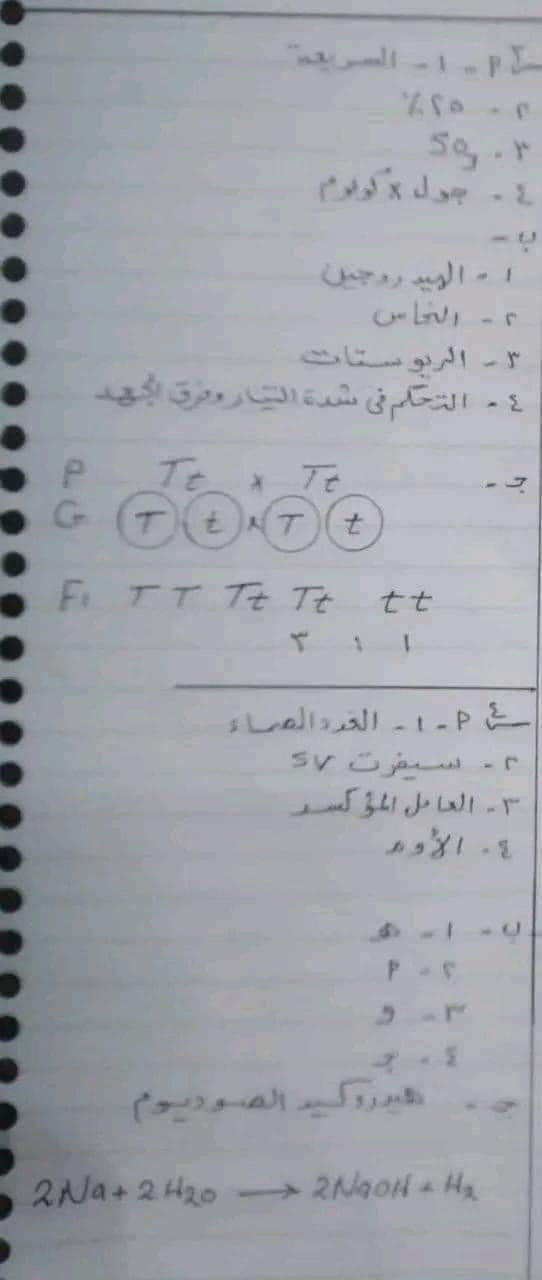 س٣ ٢ - ١ - السريعة
٢ - ٢٥٪
٣ - 50g
٤ - جول × كولوم
ب -
١ - الهيدروجين
٢ - النحاس
٣ - الريوستات
٤ - التحكم فى شدة التيار وفرق الجهد
جـ - P Tt × Tt
G T t × T t
F1 TT Tt Tt tt
٣ : ١
س٤ ٢ - ١ - الغدد الصماء
٢ - سيفرت SV
٣ - العامل المؤكسد
٤ - الأوم
ب - ١ - هـ
٢ - P
٣ - و
٤ - جـ
جـ - هيدروكسيد الصوديوم
2Na + 2H2O → 2NaOH + H2